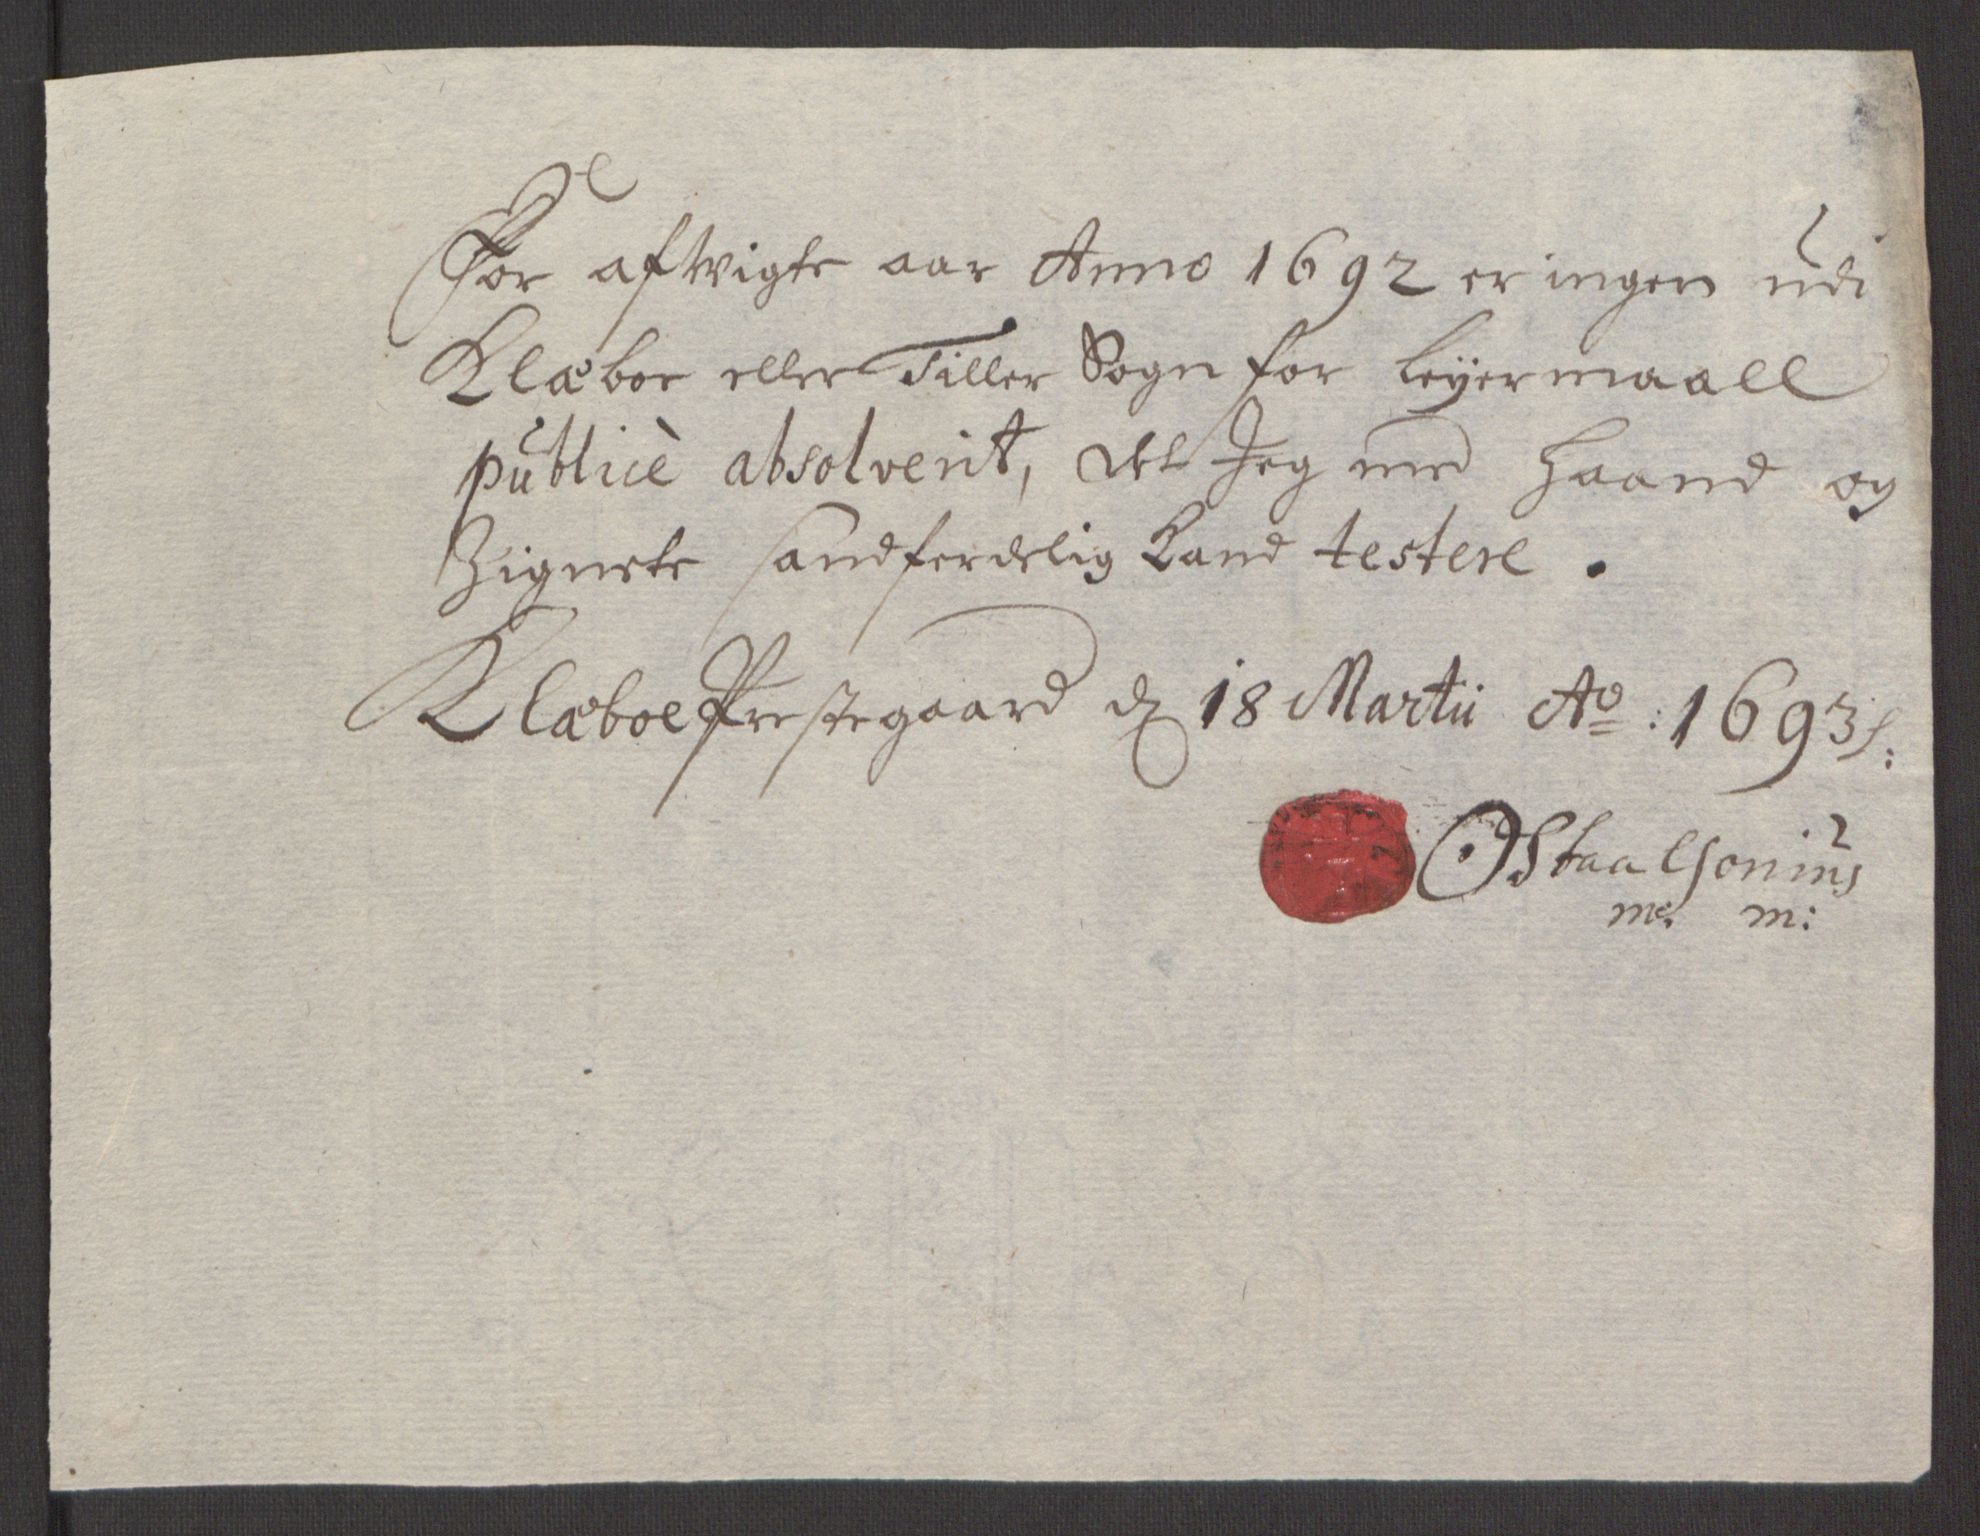 For afwigte aar Anno 1692 er ingen udi
Klæboe eller Tiller Sogn for leÿermaall
publicè absolverit, det Jeg med Haand og
Zignete sandferdelig kand testere.
Klæboe Prestegaard d 18 Martii Ao: 1693
Staalsonius
m: m: